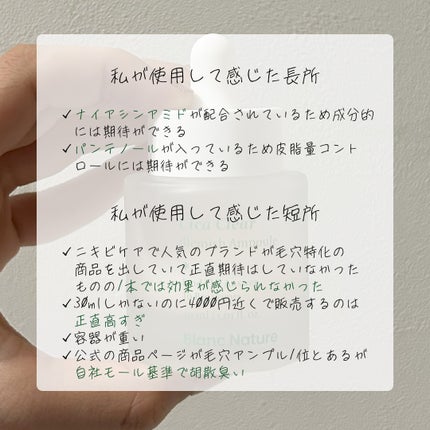 私が使用して感じた長所
✓ナイアシンアミドが配合されているため成分的
には期待ができる
✓パンテノールが入っているため皮脂量コント
ロールには期待ができる
私が使用して感じた短所
✓ニキビケアで人気のブランドが毛穴特化の
商品を出していて正直期待はしていなかった
ものの1本では効果が感じられなかった
✓30mlしかないのに4000円近くで販売するのは
正直高すぎ
✓容器が重い
✓公式の商品ページが毛穴アンプル1位とあるが
自社モール基準で胡散臭い
Cica Clear
Ampoule
Blanc Nature